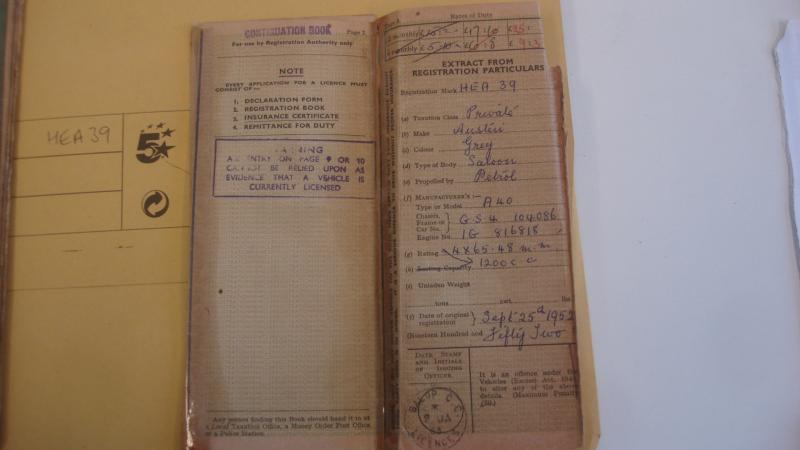 HEA 39
5
CONTINUATION BOOK
Page 2
For use by Registration Authority only
NOTE
EVERY APPLICATION FOR A LICENCE MUST
CONSIST OF:—
1. DECLARATION FORM
2. REGISTRATION BOOK
3. INSURANCE CERTIFICATE
4. REMITTANCE FOR DUTY
WARNING
AN ENTRY ON PAGE 9 OR 10
CANNOT BE RELIED UPON AS
EVIDENCE THAT A VEHICLE IS
CURRENTLY LICENSED
Any person finding this Book should hand it to
a Local Taxation Office, a Money Order Post Office,
or a Police Station.
Rates of Duty
monthly
monthly
EXTRACT FROM
REGISTRATION PARTICULARS
Registration Mark HEA 39
(a) Taxation Class Private
(b) Make Austin
(c) Colour Grey
(d) Type of Body Saloon
(e) Propelled by Petrol
(f) MANUFACTURER'S:—
Type or Model A40
Chassis, Frame or Car No. GS4 104086
Engine No. 1G 816818
(g) Rating 4X65.48 m.m.
(h) Seating Capacity 1200 c.c
(i) Unladen Weight
tons cwt. lbs
(j) Date of original registration Sept 25th 1952
(Nineteen Hundred and Fifty Two
DATE STAMP
AND INITIALS
OF ISSUING
OFFICER.
It is an offence under the
Vehicles (Excise) Act,
to alter any of the above
details. (Maximum Penalty